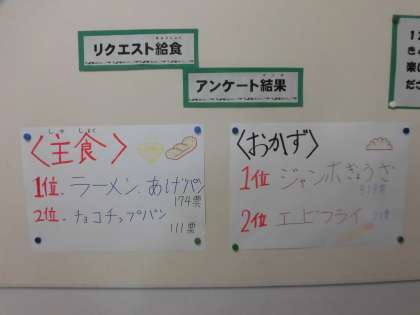 リクエスト給食
アンケート結果
〈主食〉
しゅ しょく
1位. ラーメン. あげパン
174票
2位. チョコチップパン
111票
〈おかず〉
1位 ジャンボぎょうざ
2位 エビフライ